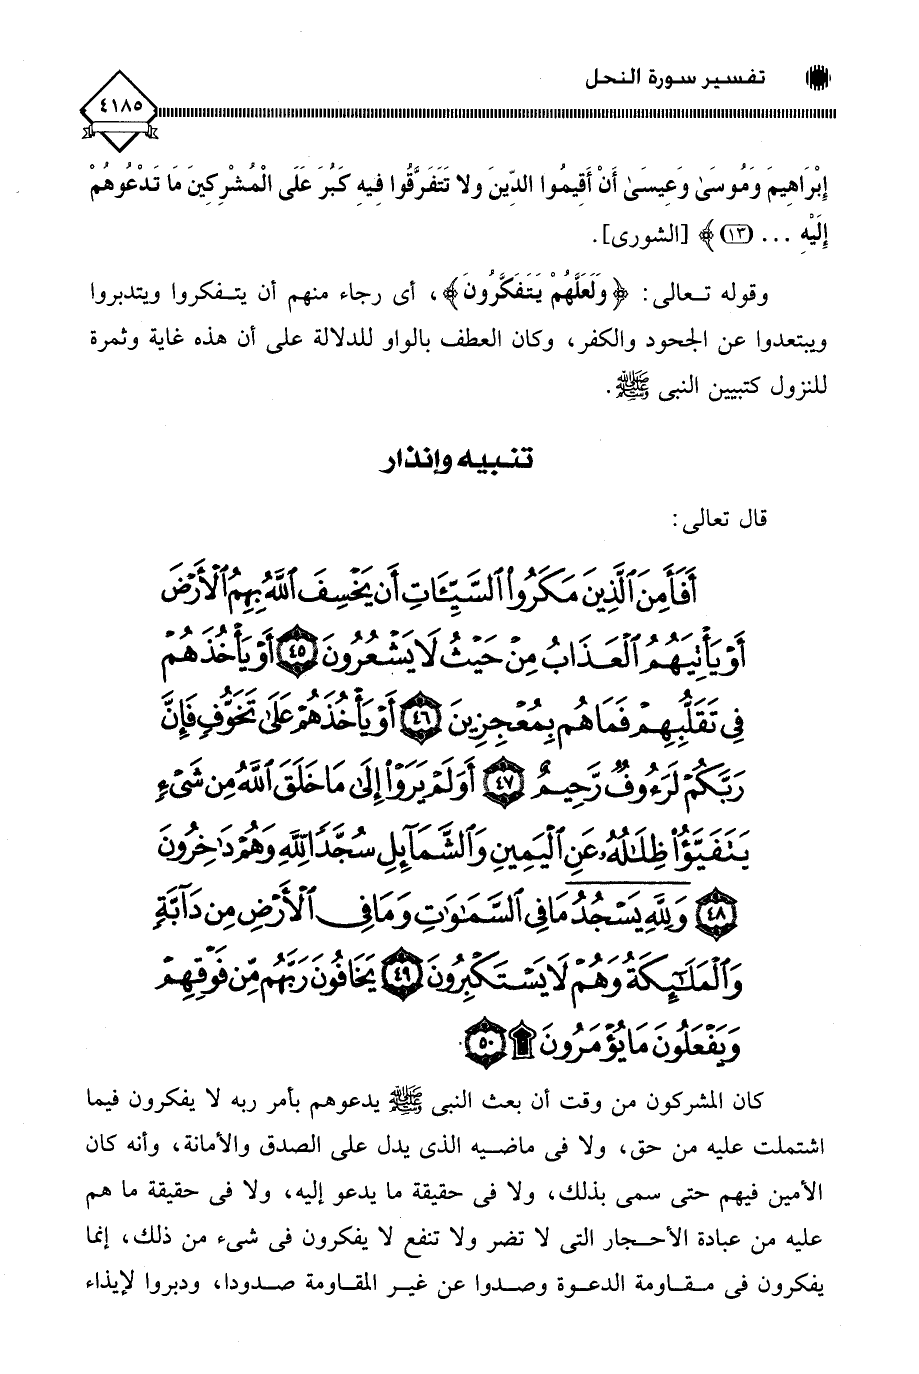 تفسير سورة النحل
٤١٨٥
إِبْرَاهِيمَ وَمُوسَىٰ وَعِيسَىٰ أَنْ أَقِيمُوا الدِّينَ وَلا تَتَفَرَّقُوا فِيهِ كَبُرَ عَلَى الْمُشْرِكِينَ مَا تَدْعُوهُمْ
إِلَيْهِ ... (١٣)﴾ [الشورى].
وقوله تعالى: ﴿وَلَعَلَّهُمْ يَتَفَكَّرُونَ﴾، أى رجاء منهم أن يتفكروا ويتدبروا
ويبتعدوا عن الجحود والكفر، وكان العطف بالواو للدلالة على أن هذه غاية وثمرة
للنزول كتبيين النبى ﷺ.
تنبيه وإنذار
قال تعالى:
أَفَأَمِنَ ٱلَّذِينَ مَكَرُوا۟ ٱلسَّيِّـَٔاتِ أَن يَخْسِفَ ٱللَّهُ بِهِمُ ٱلْأَرْضَ
أَوْ يَأْتِيَهُمُ ٱلْعَذَابُ مِنْ حَيْثُ لَا يَشْعُرُونَ ٤٥ أَوْ يَأْخُذَهُمْ
فِى تَقَلُّبِهِمْ فَمَا هُم بِمُعْجِزِينَ ٤٦ أَوْ يَأْخُذَهُمْ عَلَىٰ تَخَوُّفٍ فَإِنَّ
رَبَّكُمْ لَرَءُوفٌ رَّحِيمٌ ٤٧ أَوَلَمْ يَرَوْا۟ إِلَىٰ مَا خَلَقَ ٱللَّهُ مِن شَىْءٍ
يَتَفَيَّؤُا۟ ظِلَـٰلُهُۥ عَنِ ٱلْيَمِينِ وَٱلشَّمَآئِلِ سُجَّدًا لِّلَّهِ وَهُمْ دَٰخِرُونَ
٤٨ وَلِلَّهِ يَسْجُدُ مَا فِى ٱلسَّمَـٰوَٰتِ وَمَا فِى ٱلْأَرْضِ مِن دَآبَّةٍ
وَٱلْمَلَـٰٓئِكَةُ وَهُمْ لَا يَسْتَكْبِرُونَ ٤٩ يَخَافُونَ رَبَّهُم مِّن فَوْقِهِمْ
وَيَفْعَلُونَ مَا يُؤْمَرُونَ ۩ ٥٠
كان المشركون من وقت أن بعث النبى ﷺ يدعوهم بأمر ربه لا يفكرون فيما
اشتملت عليه من حق، ولا فى ماضيه الذى يدل على الصدق والأمانة، وأنه كان
الأمين فيهم حتى سمى بذلك، ولا فى حقيقة ما يدعو إليه، ولا فى حقيقة ما هم
عليه من عبادة الأحجار التى لا تضر ولا تنفع لا يفكرون فى شىء من ذلك، إنما
يفكرون فى مقاومة الدعوة وصدوا عن غير المقاومة صدودا، ودبروا لإيذاء